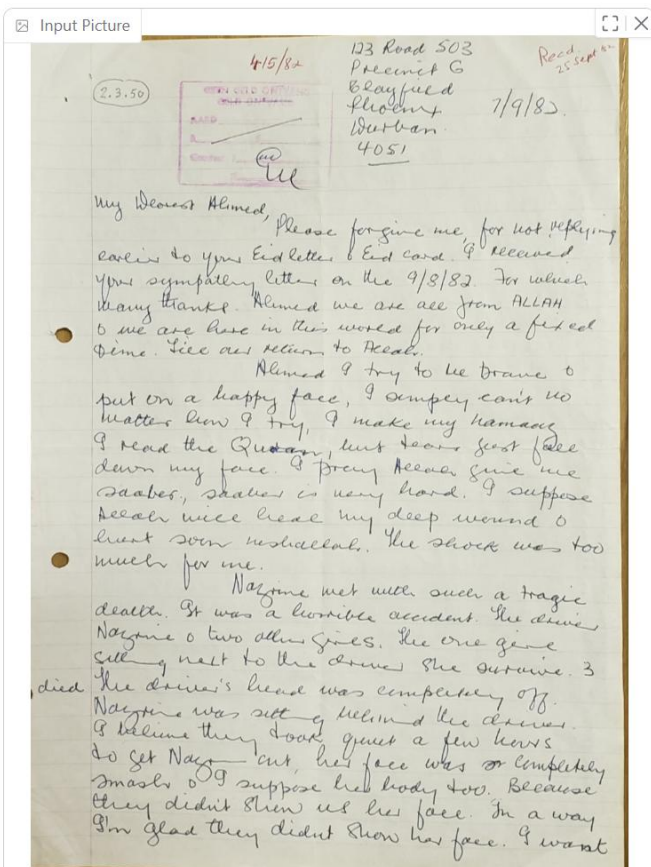 Input Picture
415/82
123 Road 503
Precinct G
Clayfield
Phoenix
Durban
4051
7/9/82.
Recd.
25 Sept 82
2.3.50
My Dearest Ahmed,
Please forgive me, for not replying
earlier to your Eid letter & Eid card. I received
your sympathy letter on the 9/8/82. For which
many thanks. Ahmed we are all from ALLAH
& we are here in this world for only a fixed
time. Till our return to Allah.
Ahmed I try to be brave &
put on a happy face, I simpey can't no
matter how I try, I make my namaaz
I read the Quraan, but tears just fall
down my face. I pray Allah give me
saaber, saaber is very hard. I suppose
Allah will heal my deep wound &
hurt soon inshallah. The shock was too
much for me.
Nazrine met with such a tragic
death. It was a horrible accident. The driver
Nazrine & two other girls. The one girl
sitting next to the driver she survive. 3
died
The driver's head was completely off.
Nazrine was sitting behind the driver.
I believe they took quiet a few hours
to get Nazrine out, her face was completely
smash & I suppose her body too. Because
they didn't show us her face. In a way
I'm glad they didnt show her face. I want